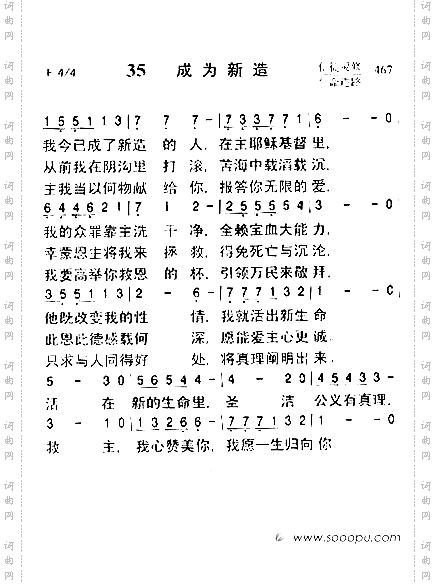 F 4/4 35 成为新造 信徒灵修 生命道路 467
1 5 5 1 1 3 | 7 7 7 - | 7 3 3 7 7 1 | 6 - - 0
我今已成了新造 的 人，在主耶稣基督里，
从前我在阴沟里 打 滚，苦海中载滔载沉，
主我当以何物献 给 你，报答你无限的爱，
6 4 4 6 2 1 | 7 1 2 - | 2 5 5 5 5 4 | 3 - - 0
我的众罪靠主洗 干 净，全赖宝血大能力，
幸蒙恩主将我来 拯 救，得免死亡与沉沦，
我要高举你救恩 的 杯，引领万民来敬拜，
3 5 5 5 1 3 | 2 - 6 - | 7 7 7 1 3 2 | 1 - - 0
他既改变我的性 情，我就活出新生命
此恩此德感载何 深，愿能爱主心更诚，
只求与人同得好 处，将真理阐明出来，
5 - 3 0 | 5 6 5 4 4 | 4 - 2 0 | 4 5 4 3 3
活 在 新的生命里，圣 洁 公义有真理，
3 - 1 0 | 1 3 2 6 6 | 7 7 7 1 3 2 | 1 - - 0
救 主，我心赞美你，我愿一生归向你
www.sooopu.com
词曲网